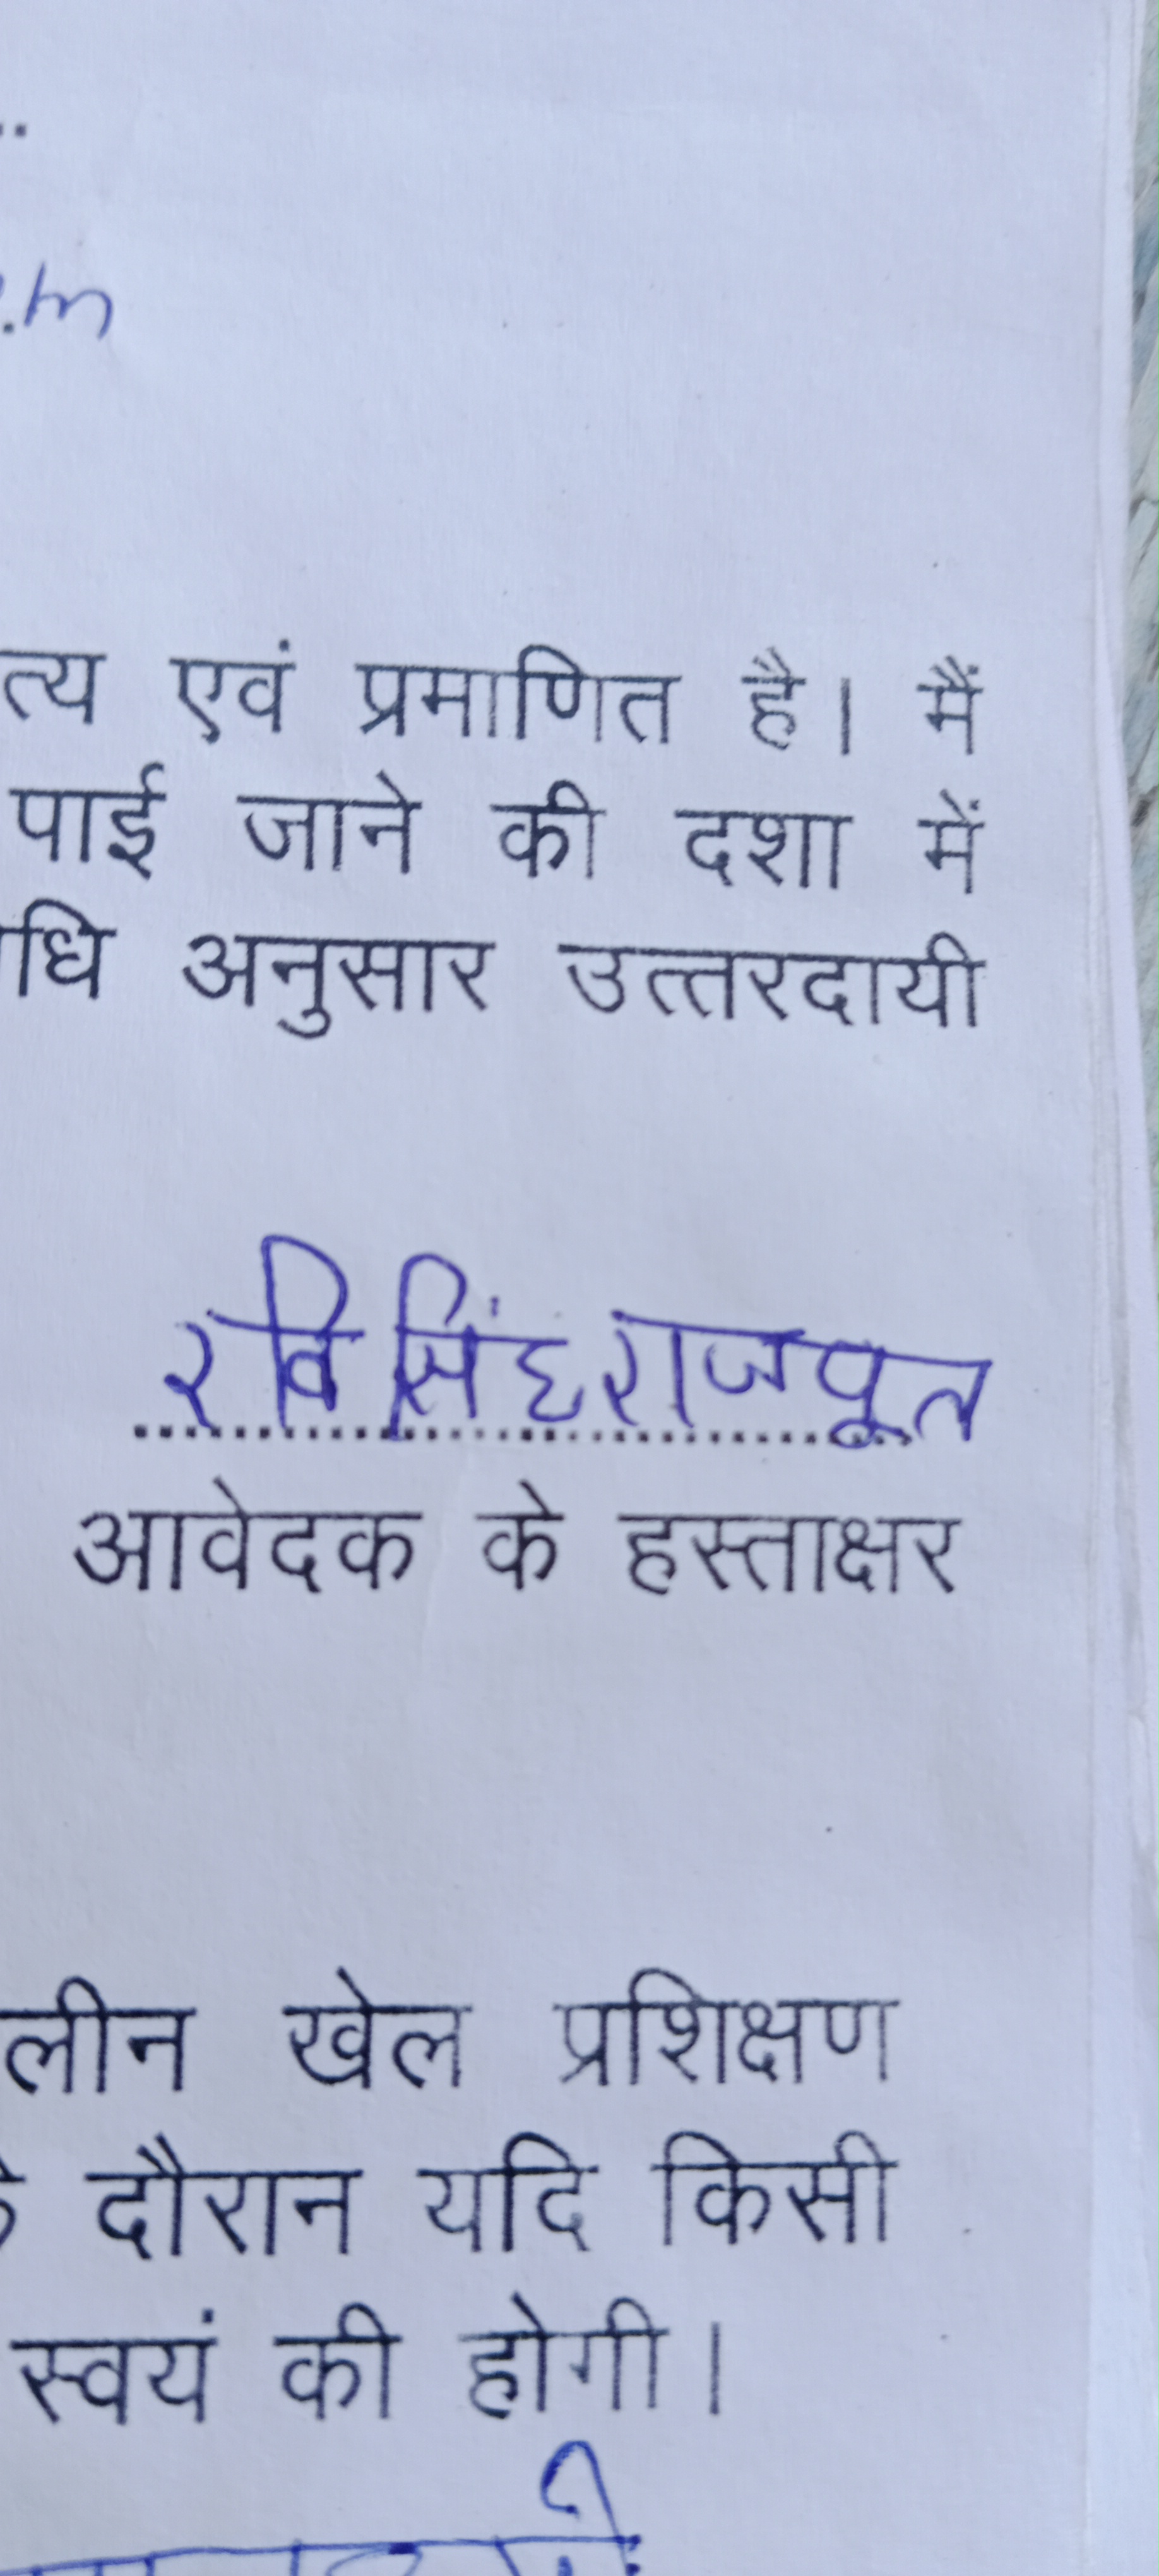 ..
.m
त्य एवं प्रमाणित है। मैं
पाई जाने की दशा में
धि अनुसार उत्तरदायी
रवि सिंह राजपूत
आवेदक के हस्ताक्षर
लीन खेल प्रशिक्षण
दौरान यदि किसी
स्वयं की होगी।